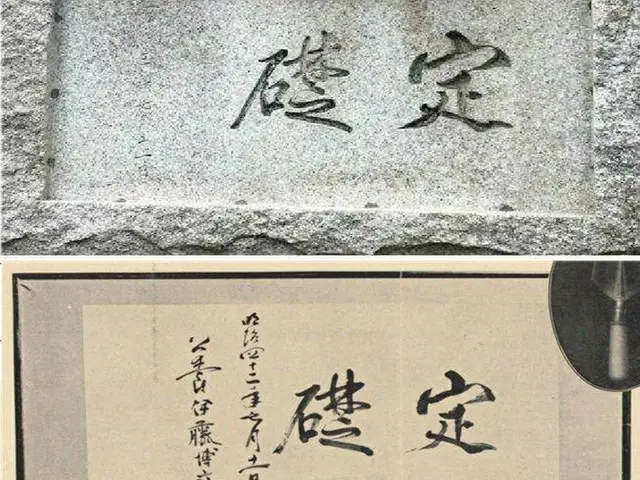 定礎
定礎
明治四十二年七月十一日
公爵伊藤博